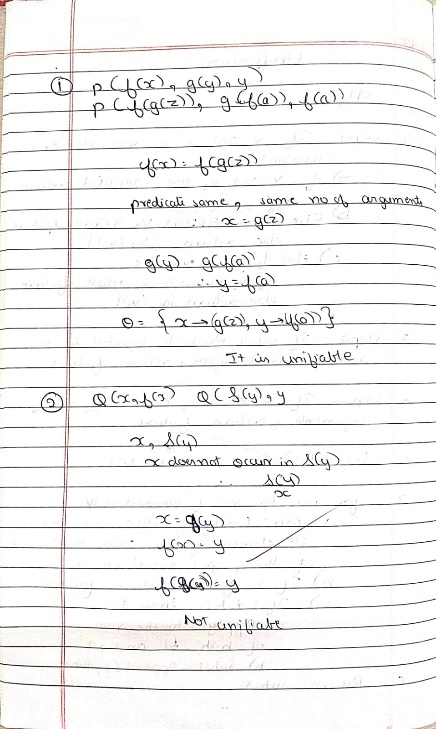 ① p(f(x), g(y), y)
p(f(g(z)), g(f(a)), f(a))
f(x) = f(g(z))
predicate same, same no of arguments
∴ x = g(z)
g(y) = g(f(a))
∴ y = f(a)
θ = { x → (g(z)), y → (f(a)) }
It is unifiable
② Q(x, f(x) Q(S(y), y
x, S(y)
x does not occur in S(y)
S(y)
x
x = g(y)
f(x) = y
f(g(y)) = y
Not unifiable